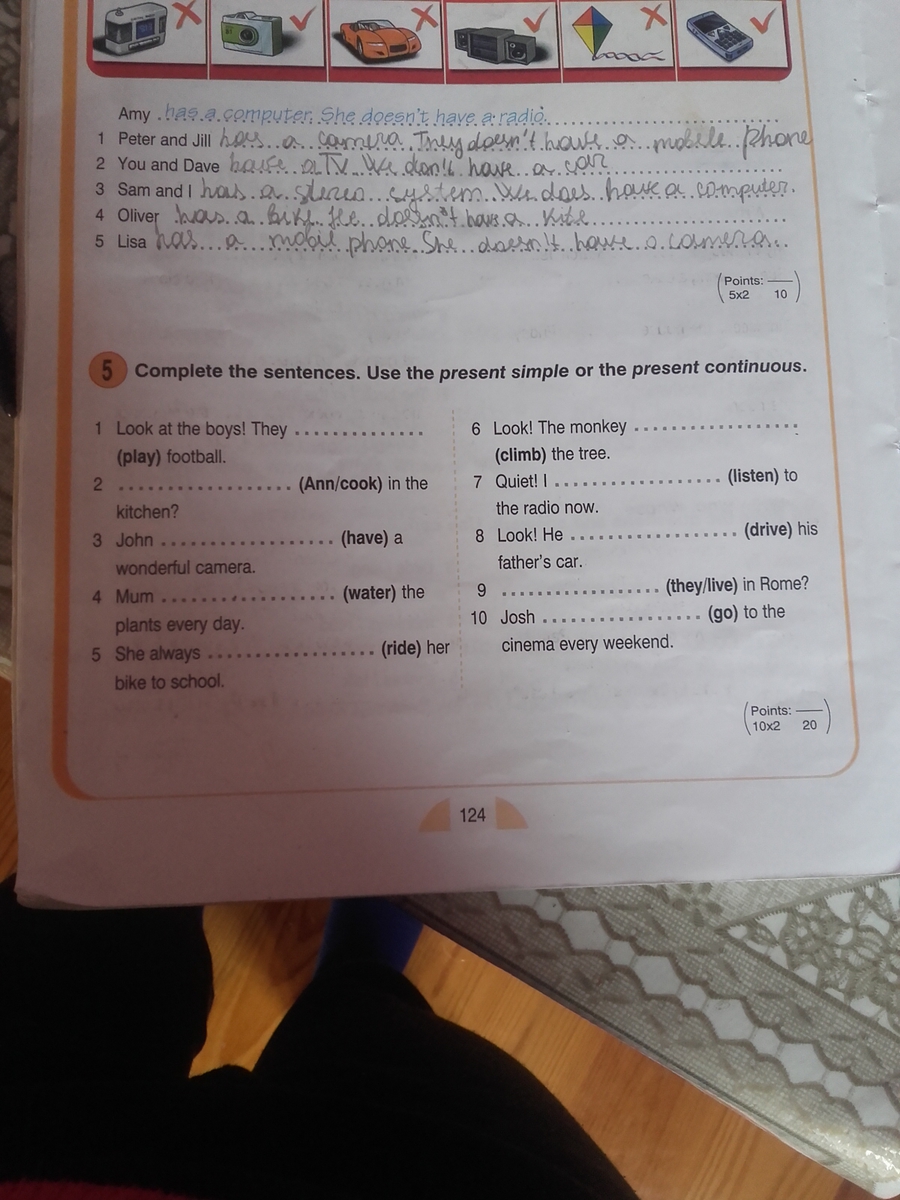 Amy has a computer. She doesn't have a radio.
1 Peter and Jill has a camera. They doesn't have a mobile phone
2 You and Dave have a TV. We don't have a car
3 Sam and I has a stereo system. We does have a computer.
4 Oliver has a bike. He doesn't have a kite
5 Lisa has a mobile phone. She doesn't have a camera.
(Points: __
5x2 10)
5 Complete the sentences. Use the present simple or the present continuous.
1 Look at the boys! They ..............
(play) football.
2 .................. (Ann/cook) in the
kitchen?
3 John .................. (have) a
wonderful camera.
4 Mum .................. (water) the
plants every day.
5 She always .................. (ride) her
bike to school.
6 Look! The monkey ..................
(climb) the tree.
7 Quiet! I .................. (listen) to
the radio now.
8 Look! He .................. (drive) his
father's car.
9 ................. (they/live) in Rome?
10 Josh ................. (go) to the
cinema every weekend.
(Points: __
10x2 20)
124